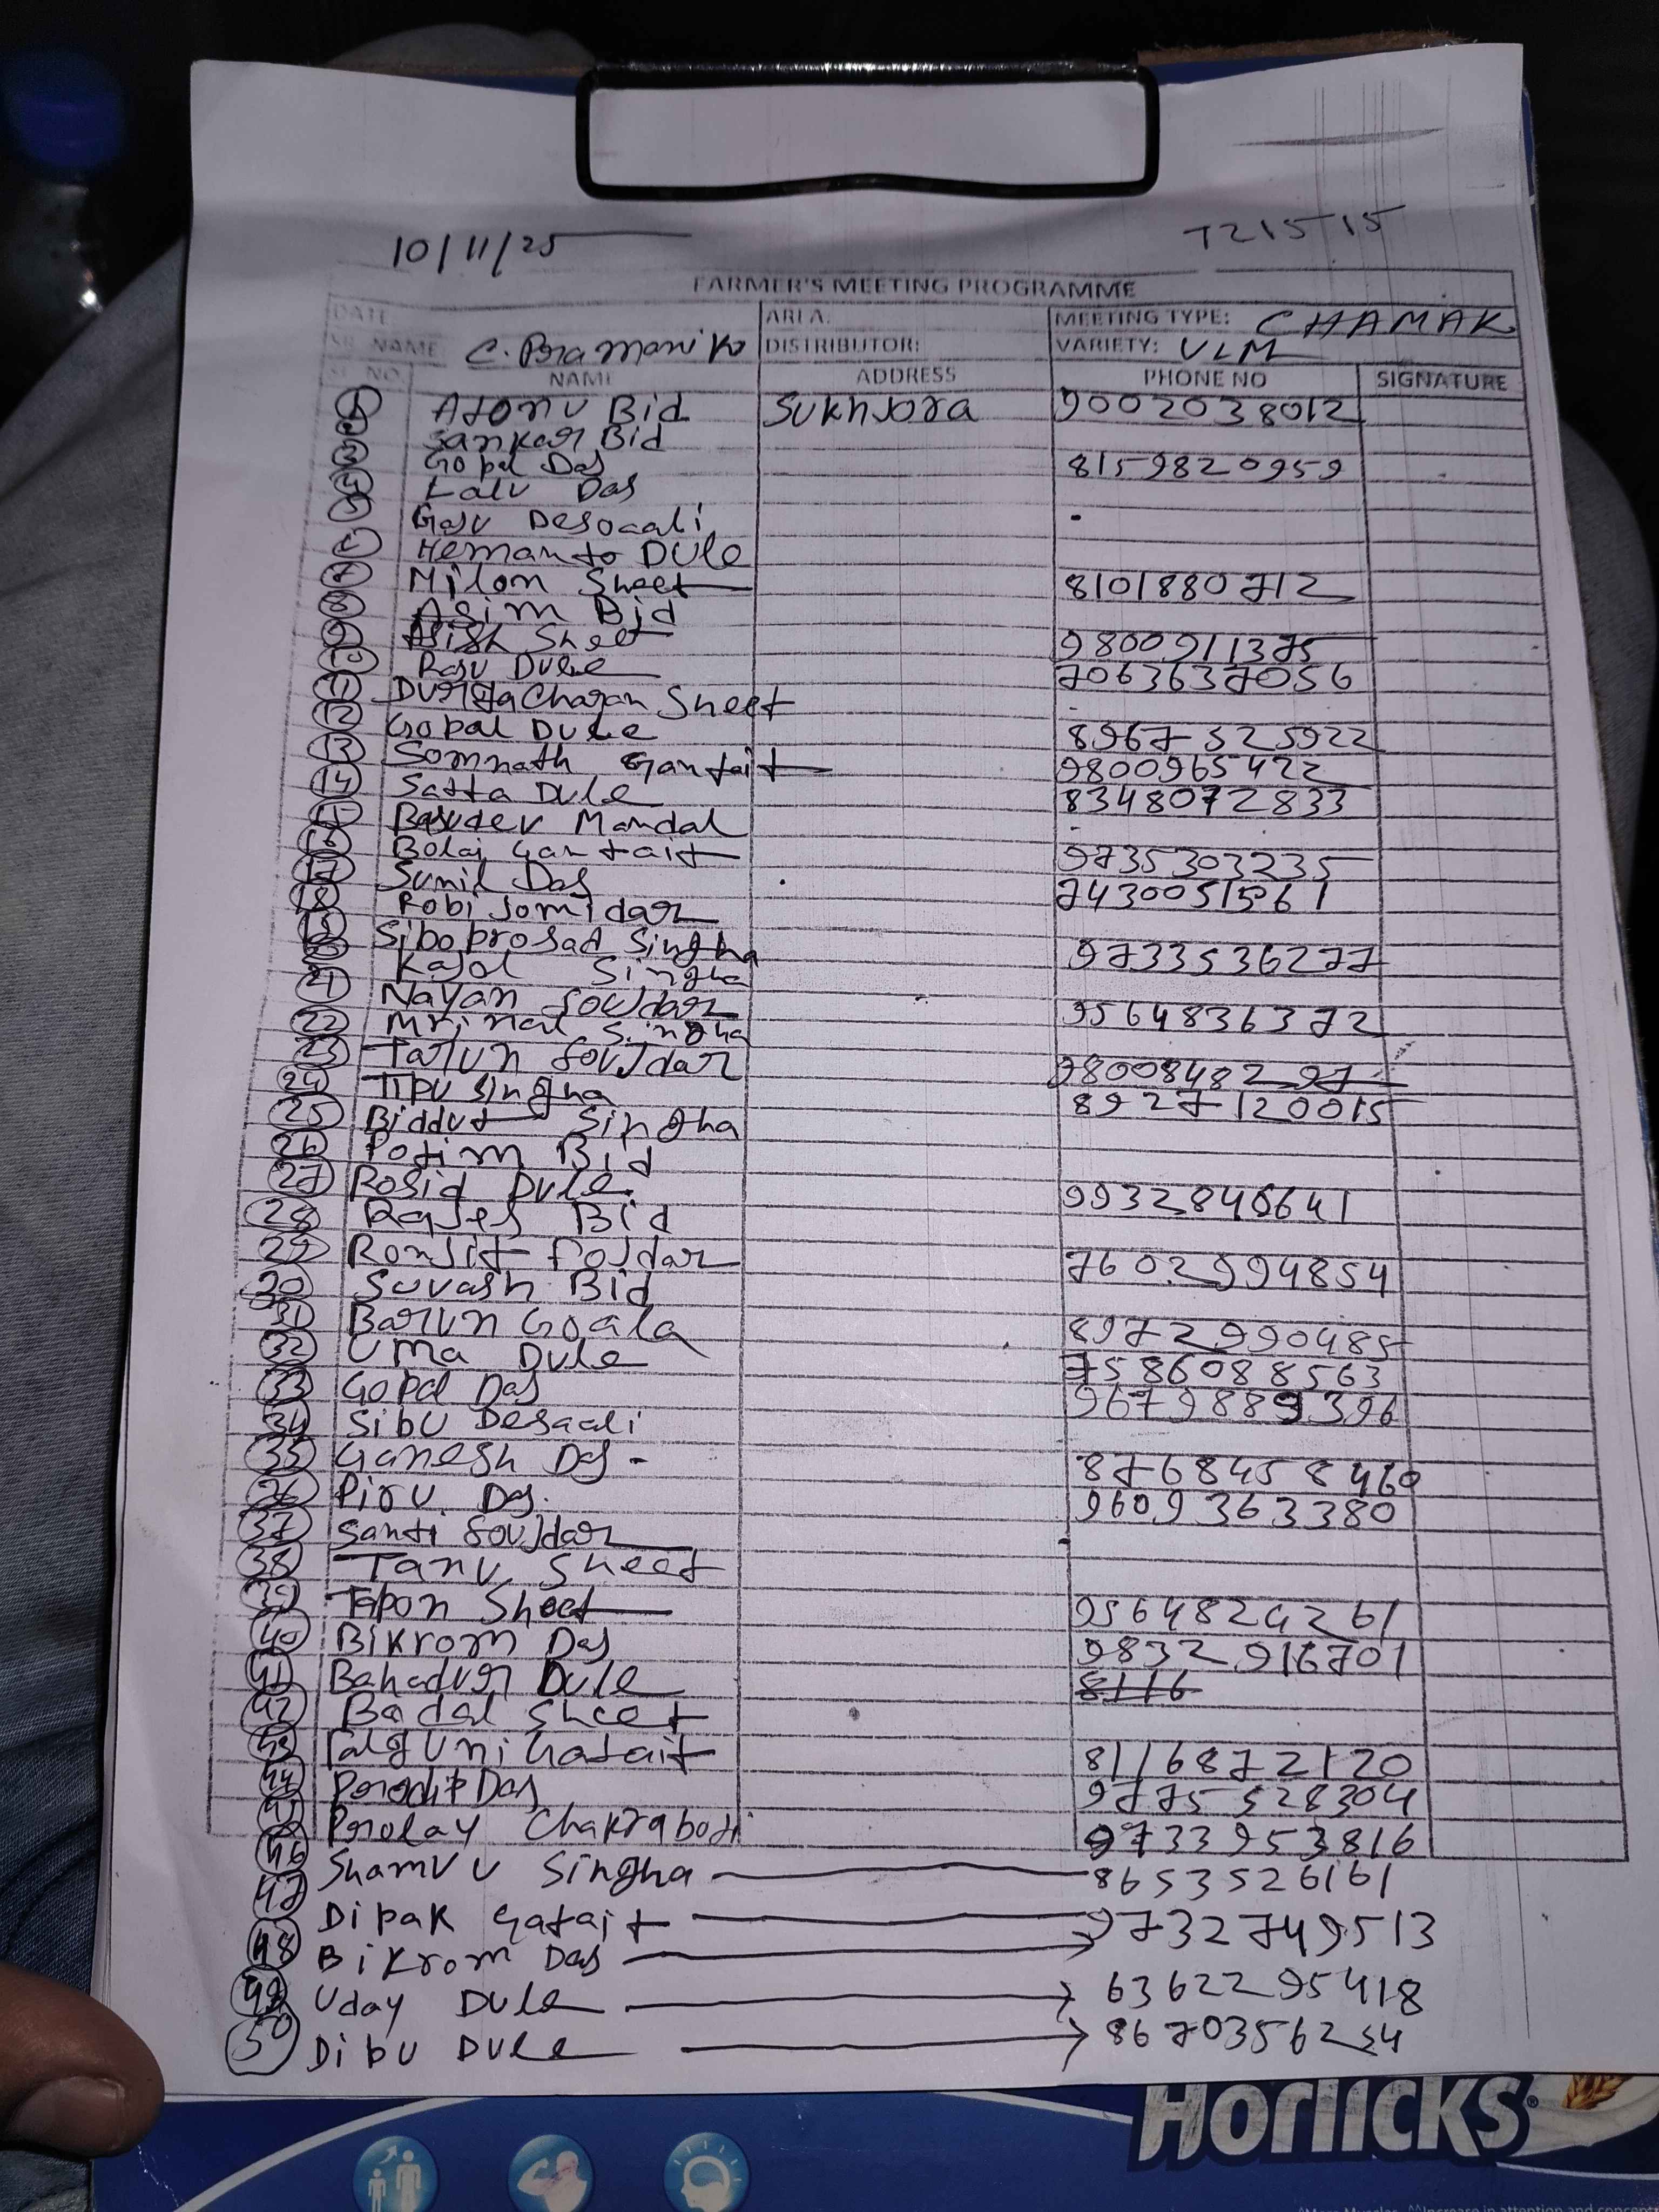 10/11/25 T21515
FARMER'S MEETING PROGRAMME
DATE: AREA: MEETING TYPE: CHAMAK
SR. NAME C. Pramanik DISTRIBUTOR: VARIETY: VLM
SL. NO. NAME ADDRESS PHONE NO SIGNATURE
1 Atonu Bid Sukhjora 9002038012
2 Sankar Bid
3 Gopal Das 8159820959
4 Lalu Das
5 Gaju Desoaali
6 Hemanto Dule
7 Milon Sheet 8101880712
8 Asim Bid
9 Asish Sheet 9800911375
10 Raju Dule 7063637056
11 Durga Charan Sheet
12 Gopal Dule 8967325922
13 Somnath Gantait 9800965422
14 Satta Dule 8348072833
15 Basudev Mandal
16 Bolai Gantait 9735303235
17 Sunil Das 7430051561
18 Robi Jomidar
19 Siboprosad Singha 9733536277
20 Kajol Singha
21 Nayan Fouzdar 9564836372
22 Mrinal Singha
23 Tarun Foujdar 9800848297
24 Tipu Singha 8927120015
25 Biddut Singha
26 Potim Bid
27 Rosid Dule 9932840641
28 Rajes Bid
29 Ronjit Fojdar 7602994854
30 Suvash Bid
31 Barun Goala 8972990485
32 Uma Dule 7586088563
33 Gopal Das 9679889396
34 Sibu Desaali
35 Ganesh Das - 8768458460
36 Piru Das. 9609363380
37 Santi Foujdar
38 Tanu Sheet
39 Tapon Sheet 9564824261
40 Bikrom Das 9832916701
41 Bahadur Dule 8116
42 Badal Sheet
43 Falguni Gatait 8116872120
44 Porodip Das 9775528304
45 Prolay Chakraboti 9733953816
46 Shamvu Singha 8653526161
47 Dipak Gatait 9732749513
48 Bikrom Das
49 Uday Dule 6362295418
50 Dibu Dule 8670356254
HORLICKS